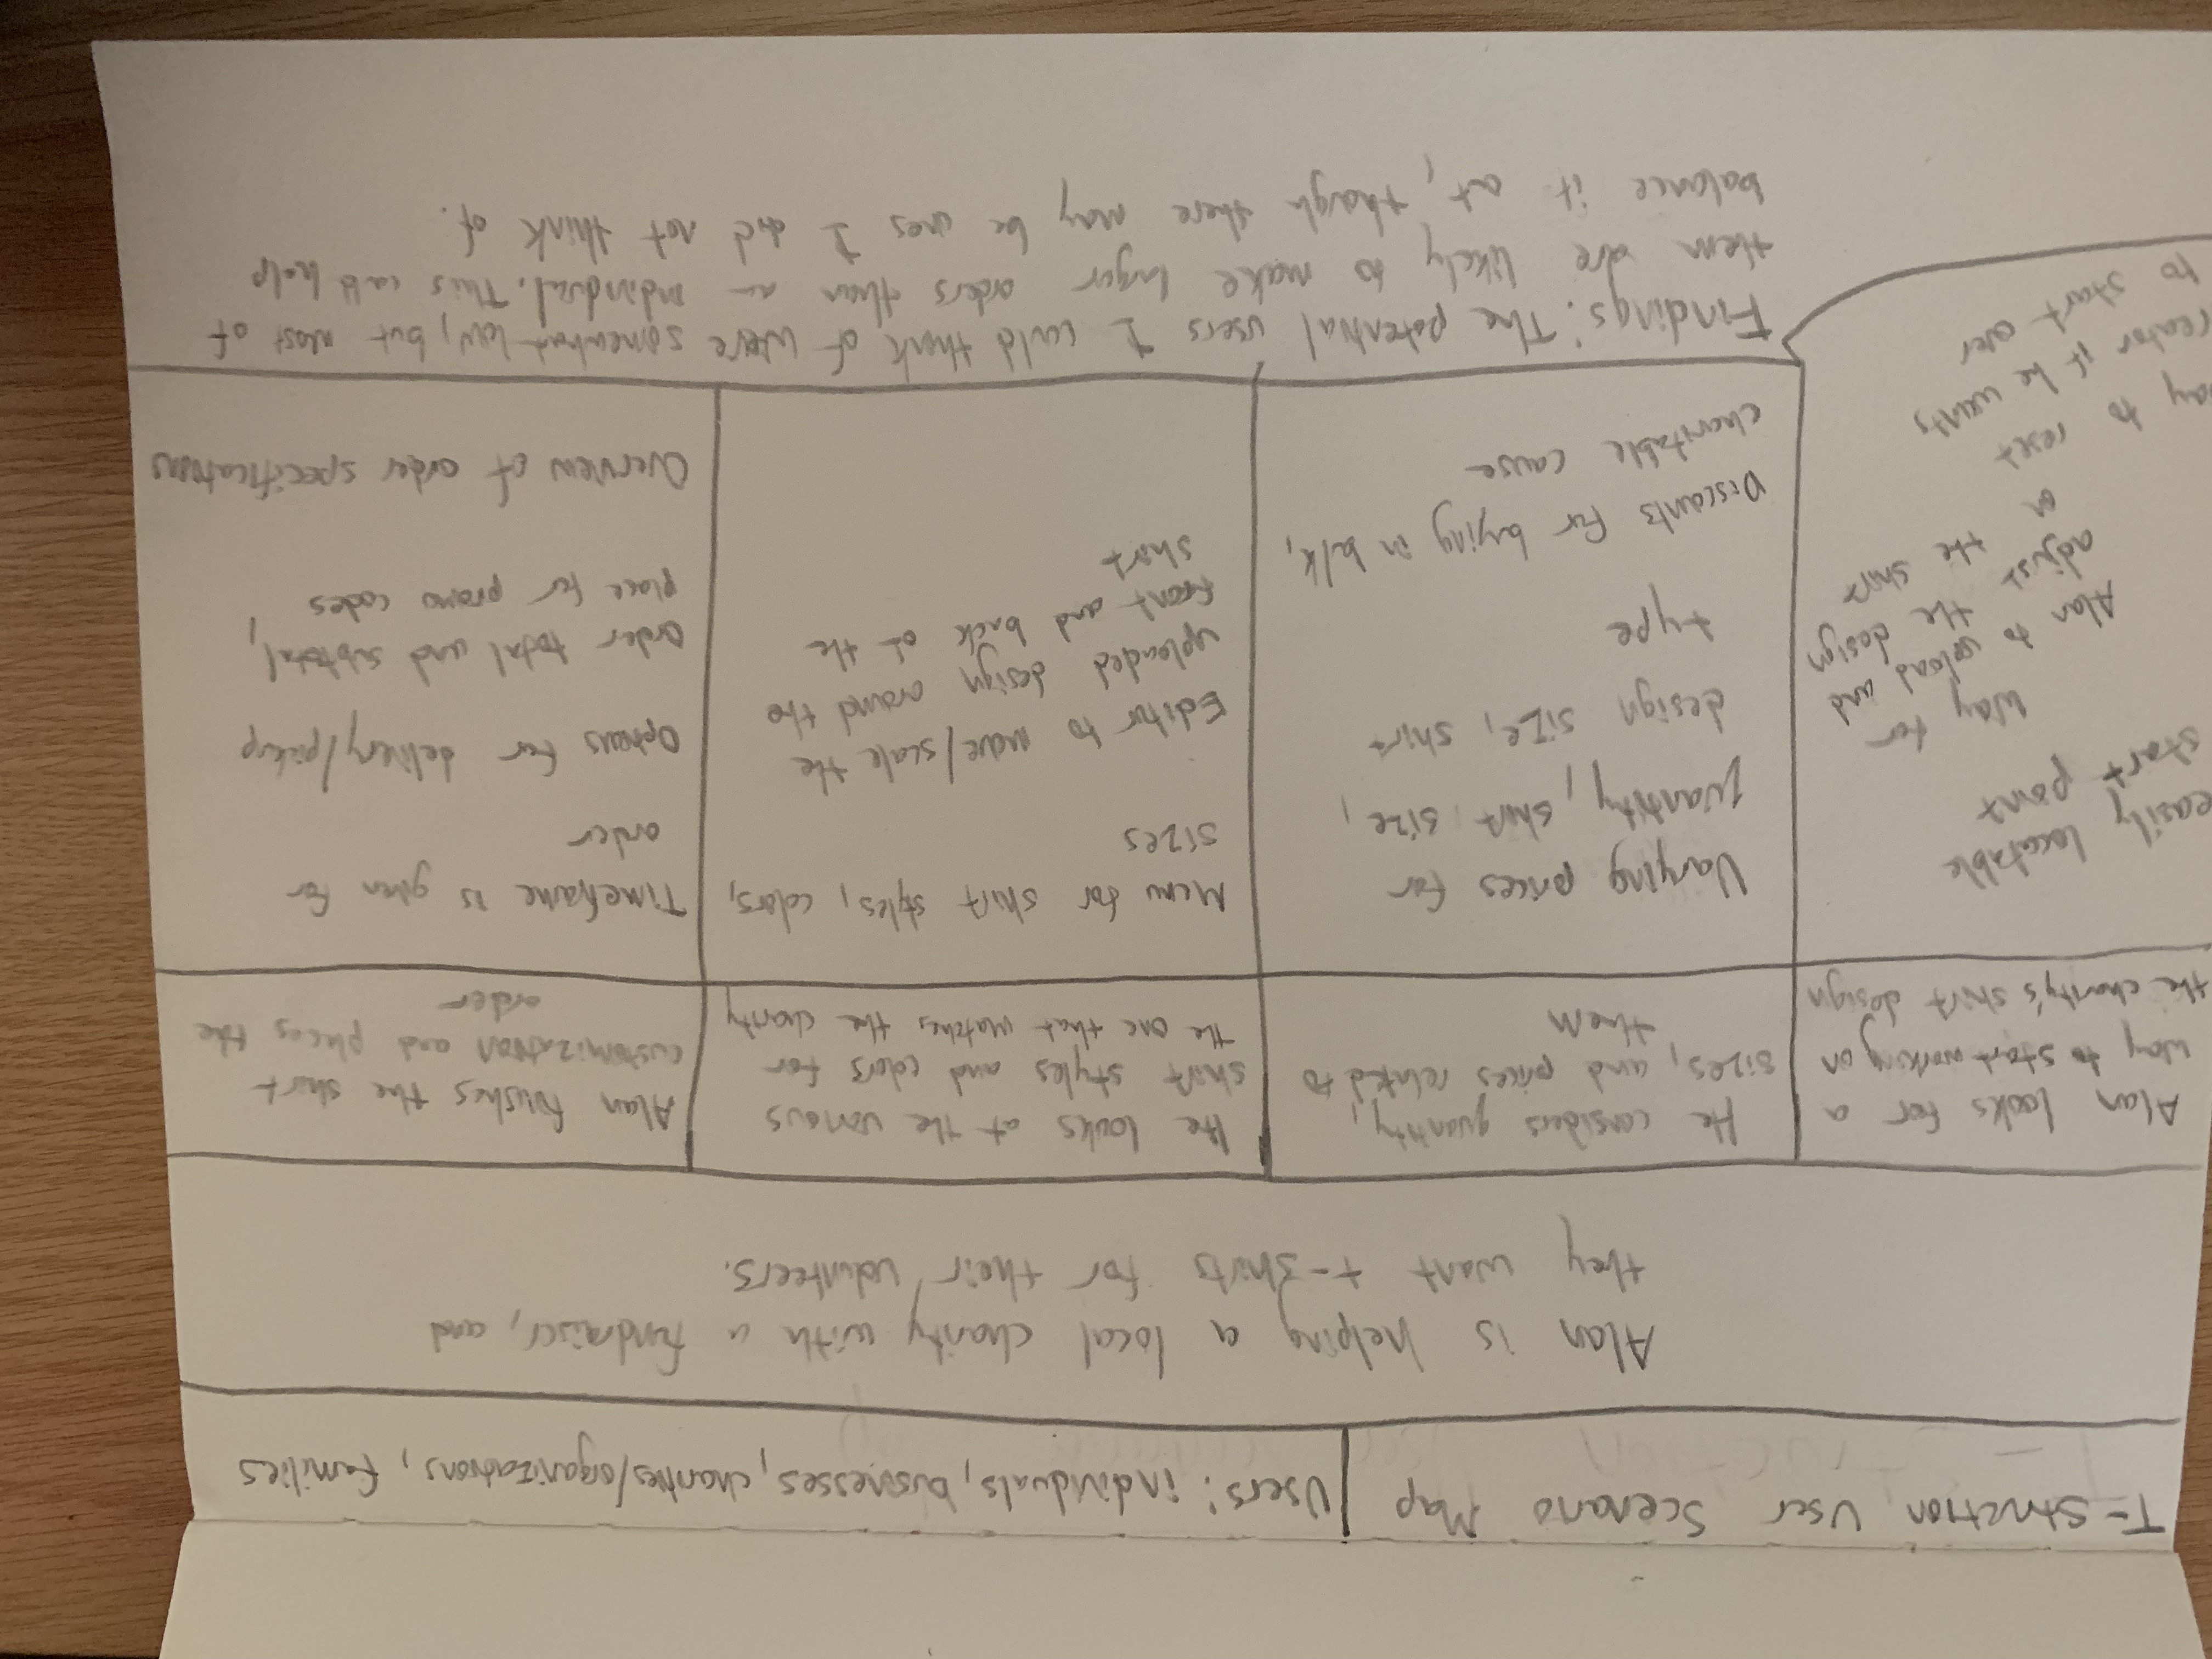 T-Struction, User Scenario Map
Users: individuals, businesses, charities/organizations, families
Alan is helping a local charity with a fundraiser, and
they want t-shirts for their volunteers.
Alan looks for a
way to start working on
the charity's shirt design
He considers quantity,
sizes, and prices related to
them
He looks at the various
shirt styles and colors for
the one that matches the charity
Alan finishes the shirt
customization and places the
order
easily locatable
start point
Way for
Alan to upload and
adjust the design
on the shirt
to reset
if he wants
to start over
Varying prices for
quantity, shirt, size,
design size, shirt
type
Discounts for buying in bulk,
charitable cause
Menu for shirt styles, colors,
sizes
Editor to move/scale the
uploaded design around the
front and back of the
shirt
Timeframe is given for
order
Options for delivery/pickup
Order total and subtotal,
place for promo codes
Overview of order specifications
Findings: The potential users I could think of were somewhat low, but most of
them are likely to make larger orders than an individual. This could help
balance it out, though there may be ones I did not think of.